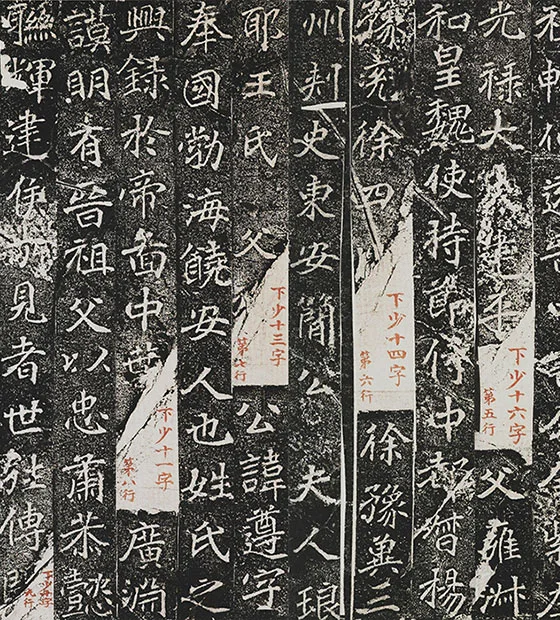 光禄大
下少十六字
第五行
父雍
和皇魏使持節侍中都督揚
豫兗徐四
下少十四字
第六行
徐豫冀三
州刾史東安簡公 夫人琅
耶王氏 父
下少十三字
第七行
公諱遵字
奉國勃海饒安人也姓氏之
興録於帝啚中葉
下少十一字
第八行
廣淵
讃明有晉祖父以忠肅恭懿
聮輝建侯 見者世 傳
下少九字
九行